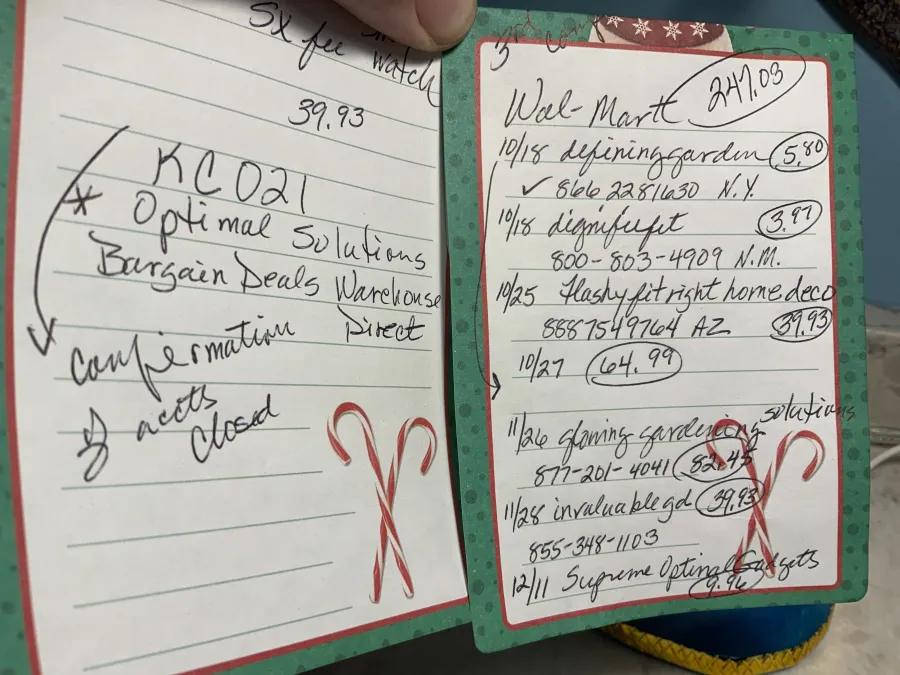 5x fee
watch
39.93
KC021
* Optimal Solutions
Bargain Deals Warehouse
Direct
Confirmation
of accts
closed
3rd
Wal-Martt 247.03
10/18 defininggarden 5.80
✓ 866 2281630 N.Y.
10/18 dignifiedfit 3.97
800-803-4909 N.M.
10/25 flashyfitright home deco
8887549764 AZ 39.93
10/27 64.99
11/26 glowing gardening solutions
877-201-4041 82.45
11/28 invaluablegd 39.93
855-348-1103
12/11 Supreme Optimal Gadgets
9.96